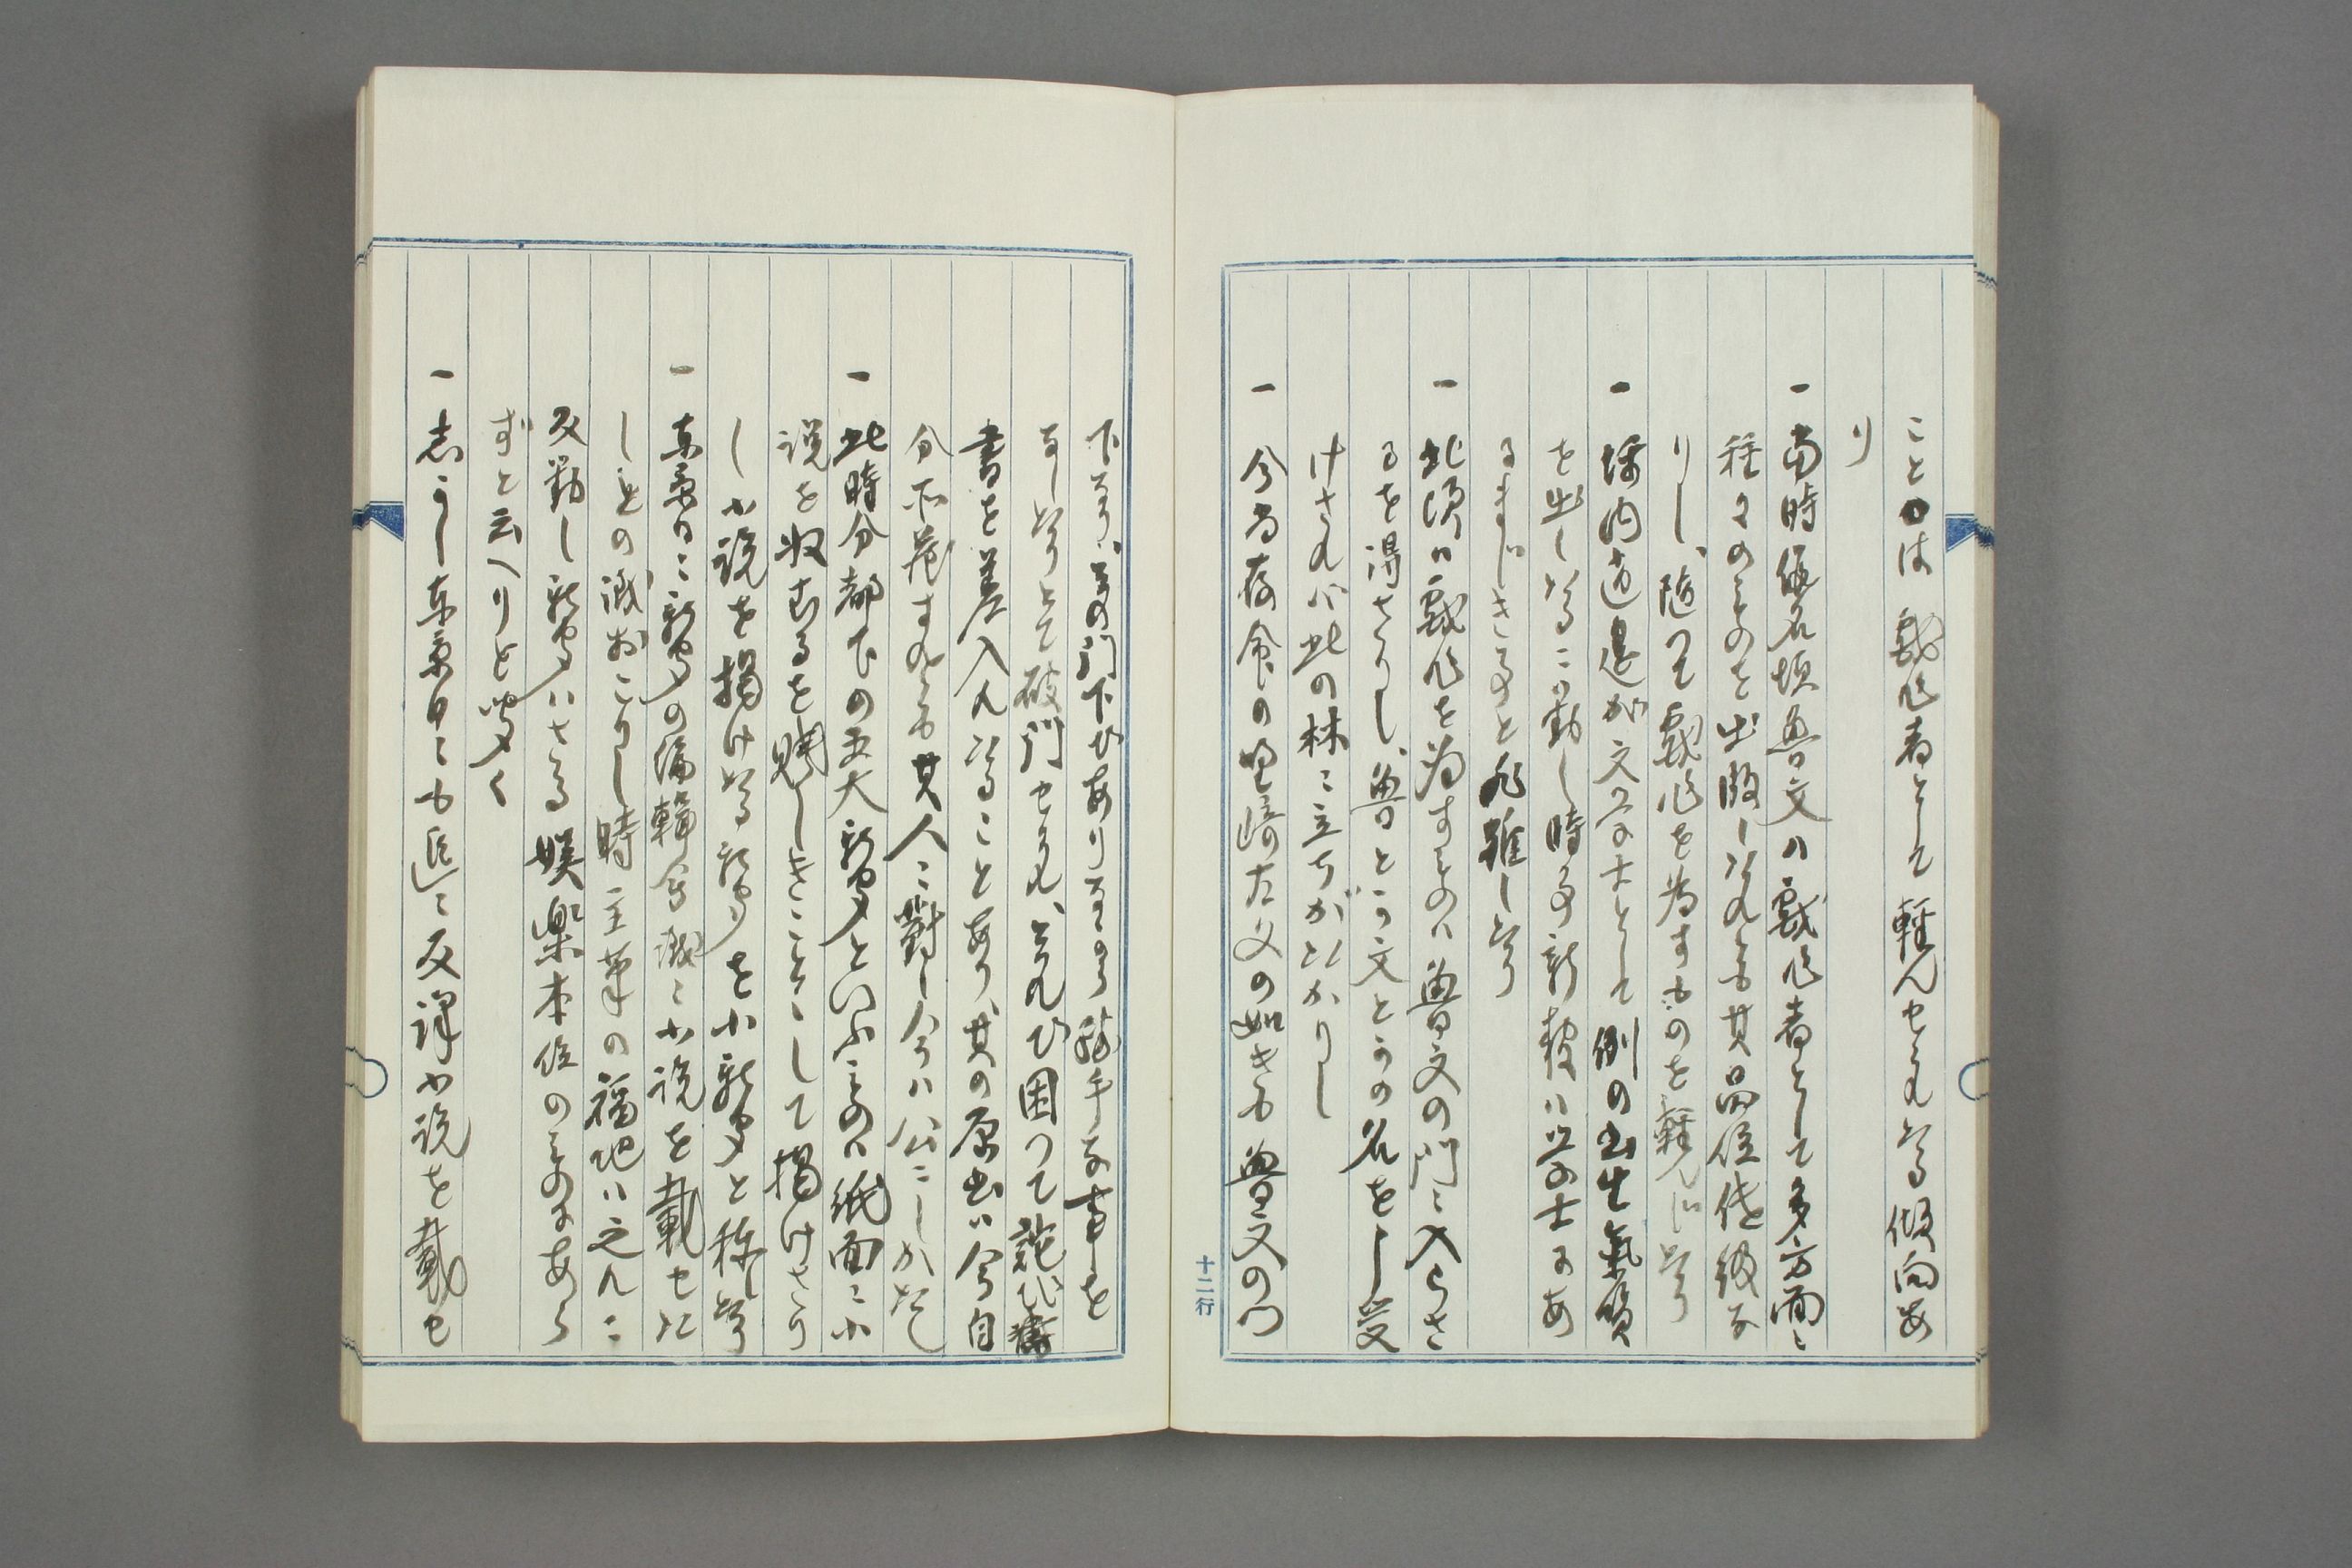 ことは戯作者として軽んせられたる傾向あ
り
一 当時仮名垣魯文ハ戯作者として多方面ニ
種々のものを出版したれども其品位低級な
りし、随つて戯作を為すものを軽んじたり
一 坪内逍遥が文学士として例の書生気質
を出したるに動し時多新聞ハ学士にあ
るまじきことと非難したり
一 此頃ハ戯作を為すものハ魯文の門ニ入らさ
るを得さりし、魯とか文とかの名をし受
けされバ此の林ニ立ちがたかりし
一 今尚存命の野崎左文の如きも魯文の門
下なり、其の門下ひありながら勝手な事を
なしたりとて破門せられ、されひ困つて詫び
書を差入れたることあり、其の原書ハ今自
分所蔵すれども其人ニ対し今ハ公ニしがたし
一 此時分都下の五大新聞といふものハ紙面ニ小
説を収むるを賤しきことゝして掲けさり
し小説を掲けたる新聞を小新聞と称したり
一 東京日ニ新聞の編輯会議ニ小説を載せた
しとの議おこりし時主筆の福地ハ之れに
反対し新聞ハさる娯楽本位のものにあら
ずと云へりと聞く
一 志かし東京日ニも遂ニ反訳小説を載せ
十二行